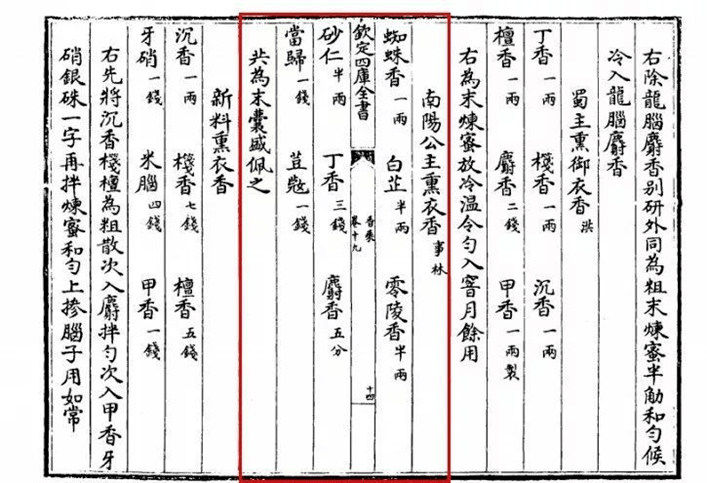 右除龍腦麝香别研外同為粗末煉蜜半觔和勻候
冷入龍腦麝香
蜀主熏御衣香 洪
丁香 一兩 棧香 一兩 沉香 一兩
檀香 一兩 麝香 二錢 甲香 一兩製
右為末煉蜜放冷温令勻入窨月餘用
南陽公主熏衣香 事林
蜘蛛香 一兩 白芷 半兩 零陵香 半兩
欽定四庫全書 香乘 卷十九 十四
砂仁 半兩 丁香 三錢 麝香 五分
當歸 一錢 荳蔻 一錢
共為末囊盛佩之
新料熏衣香
沉香 一兩 棧香 七錢 檀香 五錢
牙硝 一錢 米腦 四錢 甲香 一錢
右先將沉香棧檀為粗散次入麝拌勻次入甲香牙
硝銀硃一字再拌煉蜜和勻上摻腦子用如常